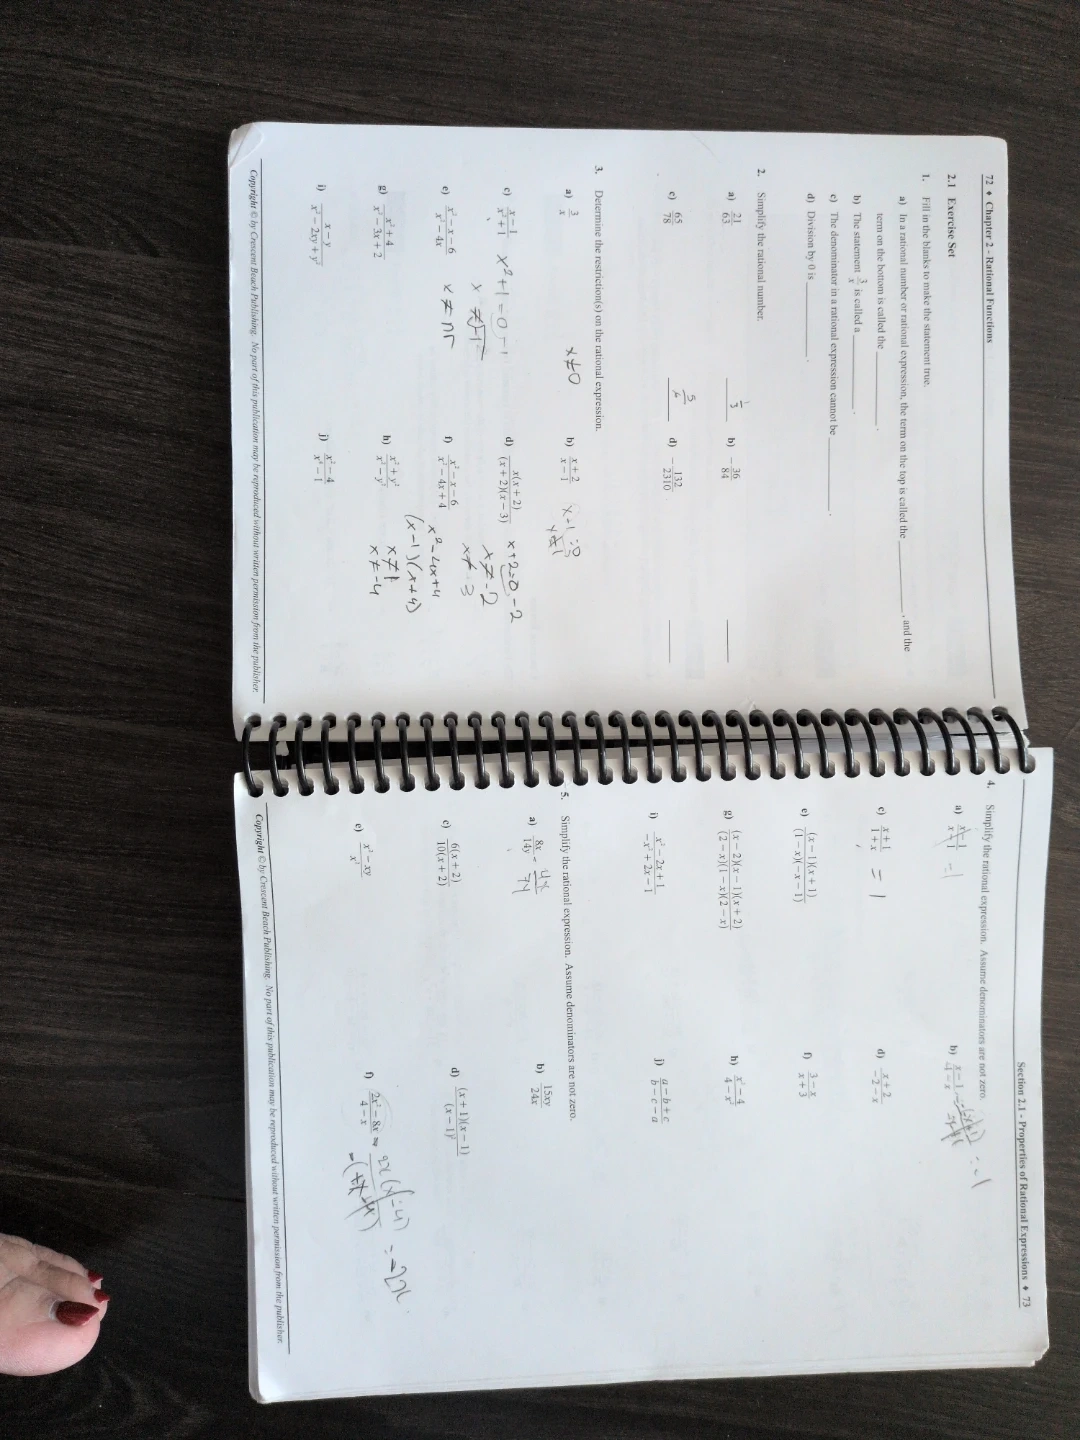 72 ♦ Chapter 2 - Rational Functions
2.1 Exercise Set
1. Fill in the blanks to make the statement true.
a) In a rational number or rational expression, the term on the top is called the ________, and the
term on the bottom is called the ________.
b) The statement 3/x is called a ________.
c) The denominator in a rational expression cannot be ________.
d) Division by 0 is ________.
2. Simplify the rational number.
a) 21/63 1/3 b) -36/84
c) 65/78 5/6 d) -132/2310
3. Determine the restriction(s) on the rational expression.
a) 3/x x≠0 b) (x+2)/(x-1) x≠1
c) (x-1)/(x²+1) x²+1=0-1 d) x(x+2)/((x+2)(x-3)) x+2=0-2
x≠-2
e) (x²-x-6)/(x²-4x) x≠nr f) (x²-x-6)/(x²-4x+4) x≠3
x²-4x+4
(x-1)(x+4)
g) (x²+4)/(x²-3x+2) h) (x²+y²)/(x²-y²) x≠1
x≠-4
i) (x-y)/(x²-2xy+y²) j)
Copyright © by Crescent Beach Publishing. No part of this publication may be reproduced without written permission from the publisher.
Section 2.1 - Properties of Rational Expressions ♦ 73
4. Simplify the rational expression. Assume denominators are not zero.
a) (x-1)/(x-1) =1 b) =-1
c) (x+1)/(1+x) = 1 d) (x+2)/(-2-x)
e) (x-1)(x+1)/((1-x)(-x-1)) f) (3-x)/(x+3)
g) (x-2)(x-1)(x+2)/((2-x)(1-x)(2-x)) h) (x²-4)/(4-x²)
i) (x²-2x+1)/(-x²+2x-1) j) (a-b+c)/(b-c-a)
5. Simplify the rational expression. Assume denominators are not zero.
a) 8x/14y = 4x/7y b) 15xy/24x
c) 6(x+2)/10(x+2) d) (x+1)(x-1)/(x-1)²
e) (x²-xy)/x² f) (2x²-8x)/(4-x) = 2x(x-4) = -2x
Copyright © by Crescent Beach Publishing. No part of this publication may be reproduced without written permission from the publisher.